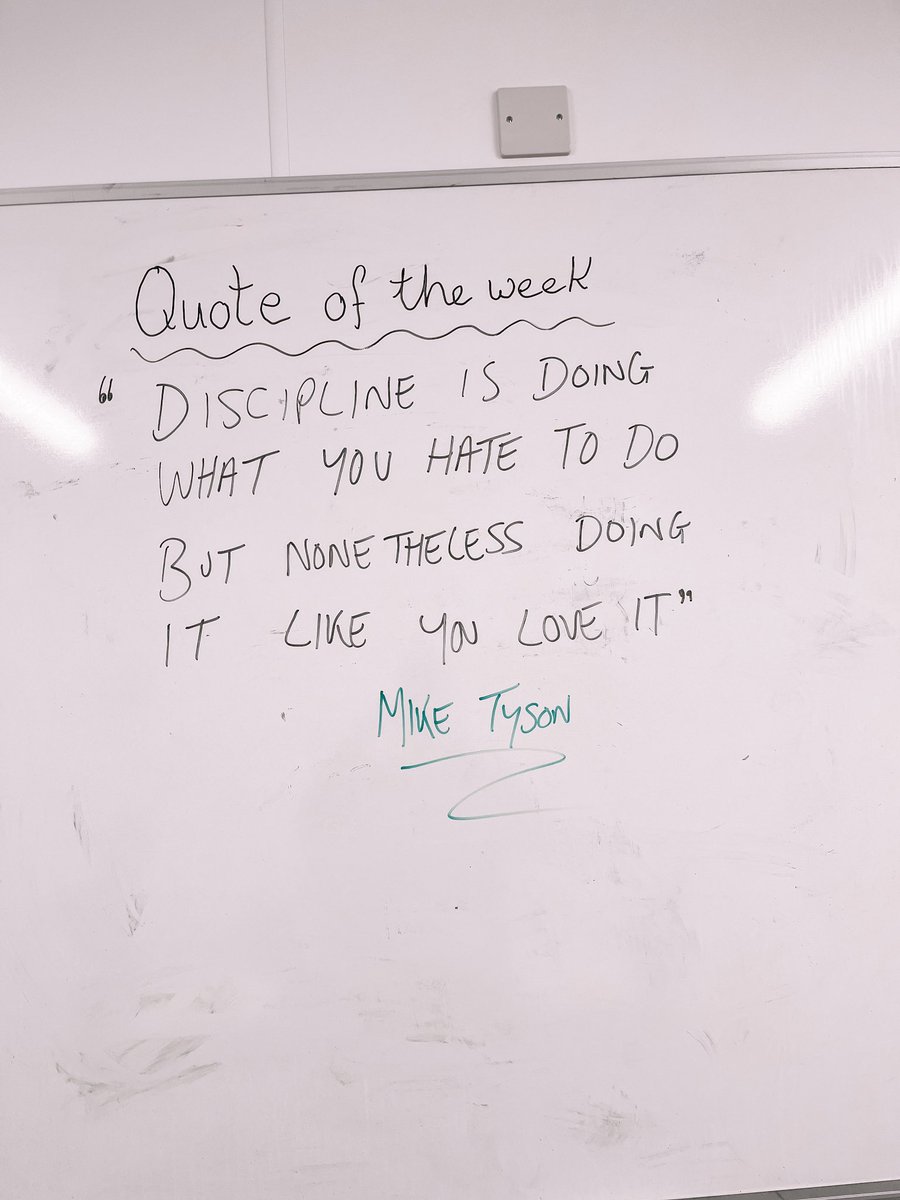 Quote of the week
“DISCIPLINE IS DOING
WHAT YOU HATE TO DO
BUT NONETHELESS DOING
IT LIKE YOU LOVE IT”
MIKE TYSON